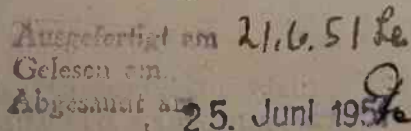 Ausgefertigt am 21.6.51 Le
Gelesen am
Abgesandt am 25. Juni 195